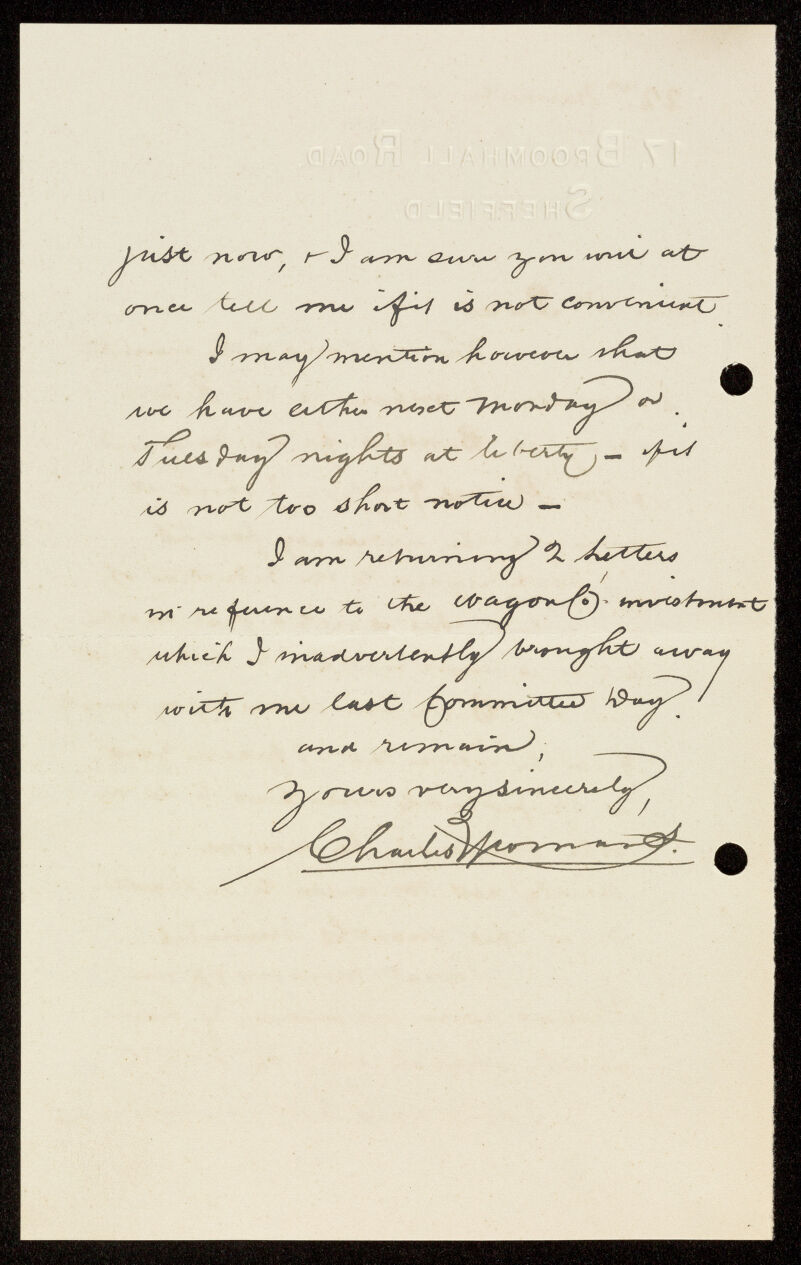 17 BROOMHALL ROAD.
SHEFFIELD
just now, & I am sure you will at
once tell me if it is not convenient.
I may mention however that
we have either next Monday or
Tuesday nights at liberty, – if it
is not too short notice –
I am returning 2 letters
in reference to the Wagon Co. investment
which I inadvertently brought away
with me last Committee Day.
and remain,
Yours very sincerely,
Charles